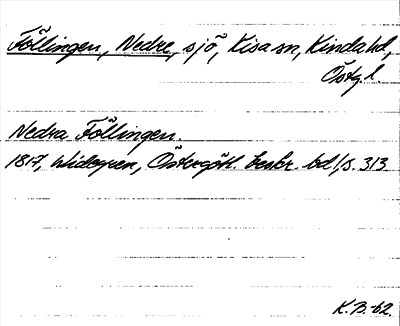 Föllingen, Nedre, sjö, Kisa sn, Kinda hd,
Östg.l.
Nedra Föllingen.
1817, Widegren, Östergötl. beskr. bd 1, s. 313
K.B.-62.